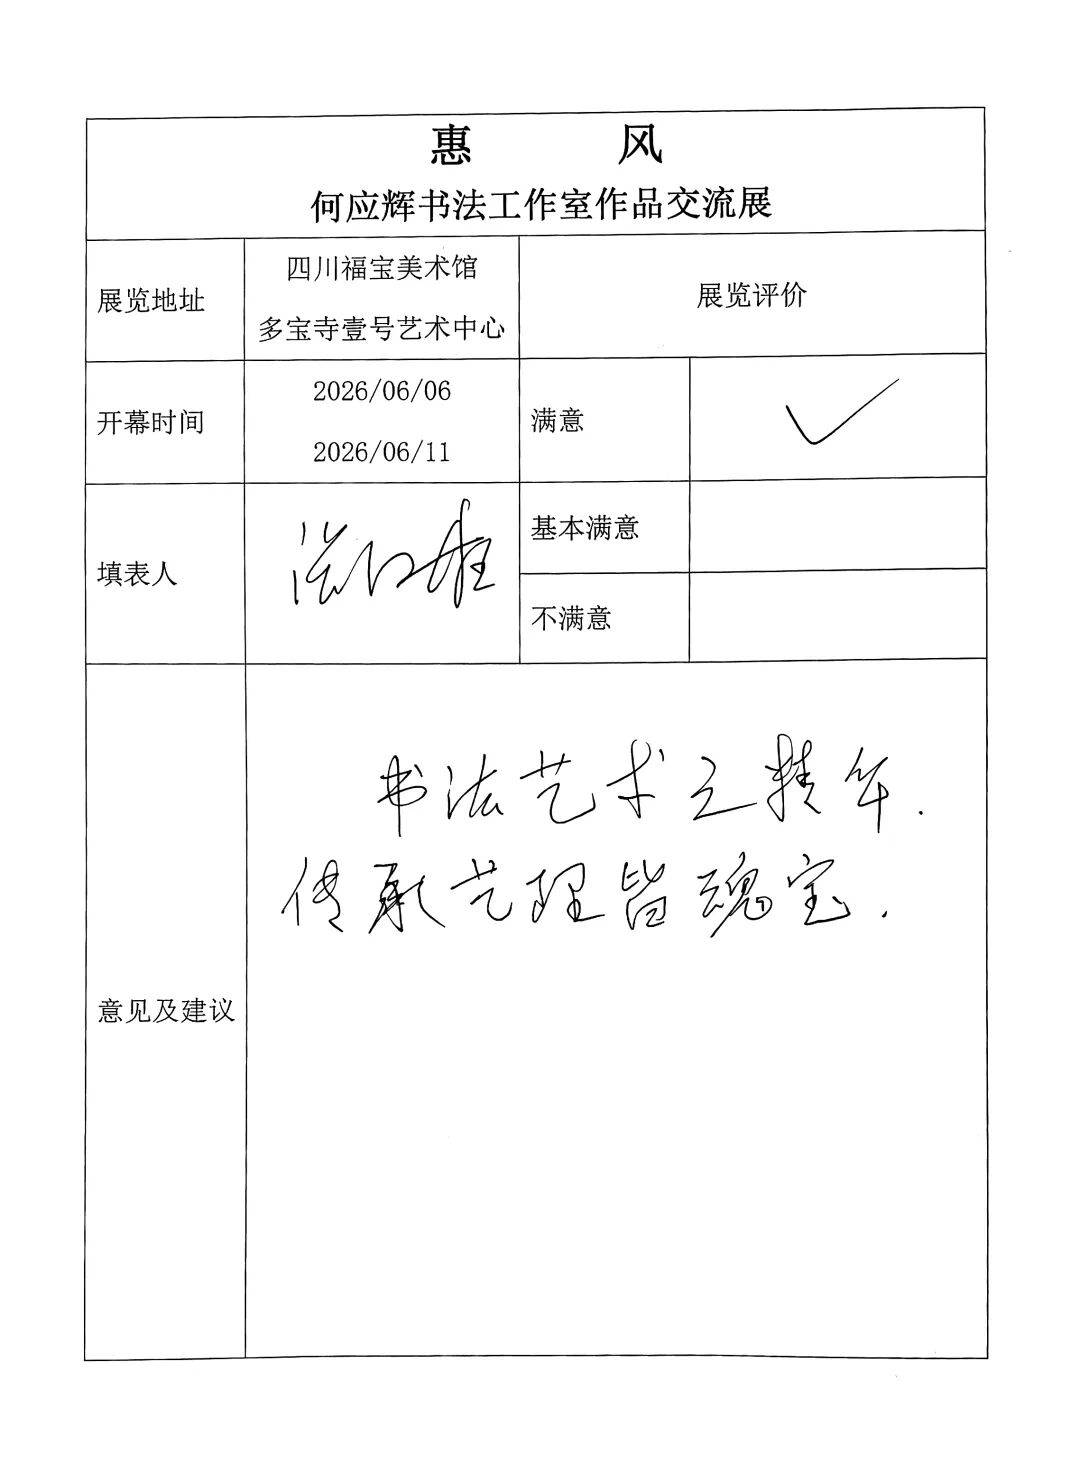 惠 风
何应辉书法工作室作品交流展
展览地址
四川福宝美术馆
多宝寺壹号艺术中心
展览评价
开幕时间
2026/06/06
2026/06/11
满意
填表人
基本满意
不满意
意见及建议
书法艺术之精华.
传承艺理皆瑰宝.